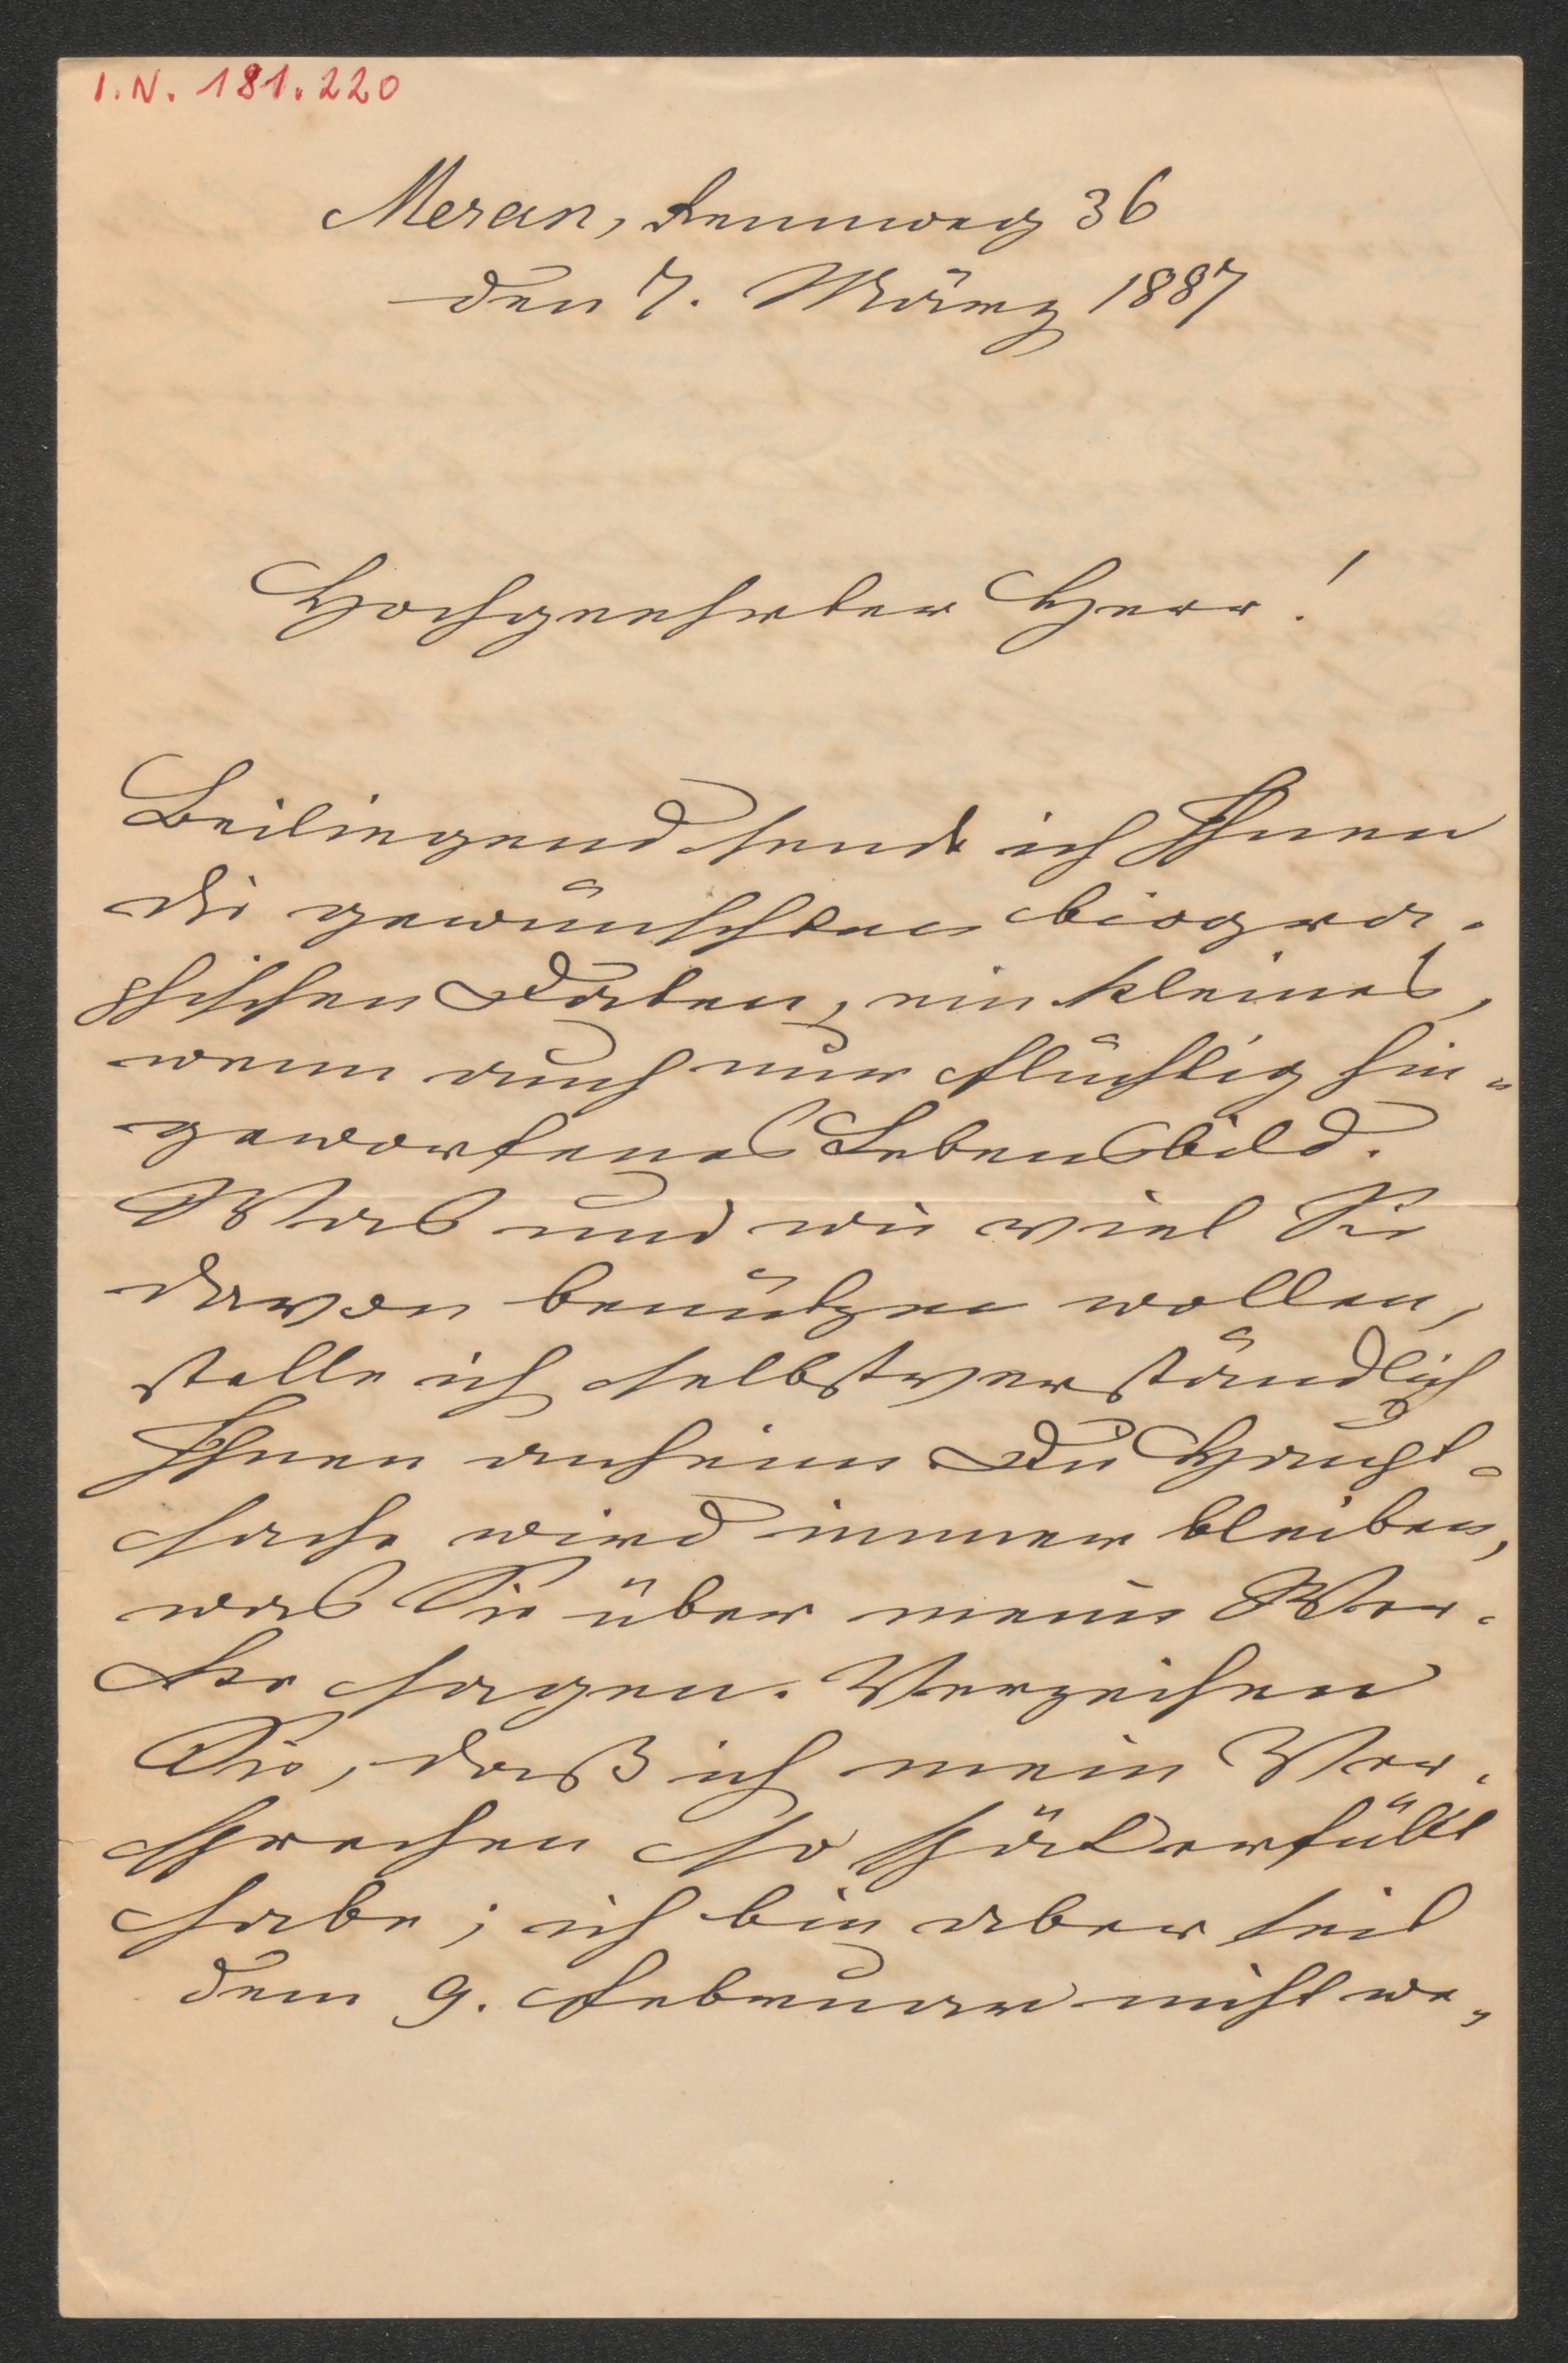 I.N. 181.220
Meran, Rennweg 36
den 7. März 1887
Hochgeehrter Herr!
Beiliegend sende ich Ihnen
die gewünschten biogra-
phischen Daten, ein kleines,
wenn auch nur flüchtig hin-
geworfenes Lebensbild.
Was und wie viel Sie
davon benützen wollen,
stelle ich selbstverständlich
Ihnen anheim. Die Haupt-
sache wird immer bleiben,
was Sie über meine Wer-
ke sagen. Verzeihen
Sie, daß ich mein Ver-
sprechen so spät erfüllt
habe; ich bin aber seit
dem 9. Februar nicht we-